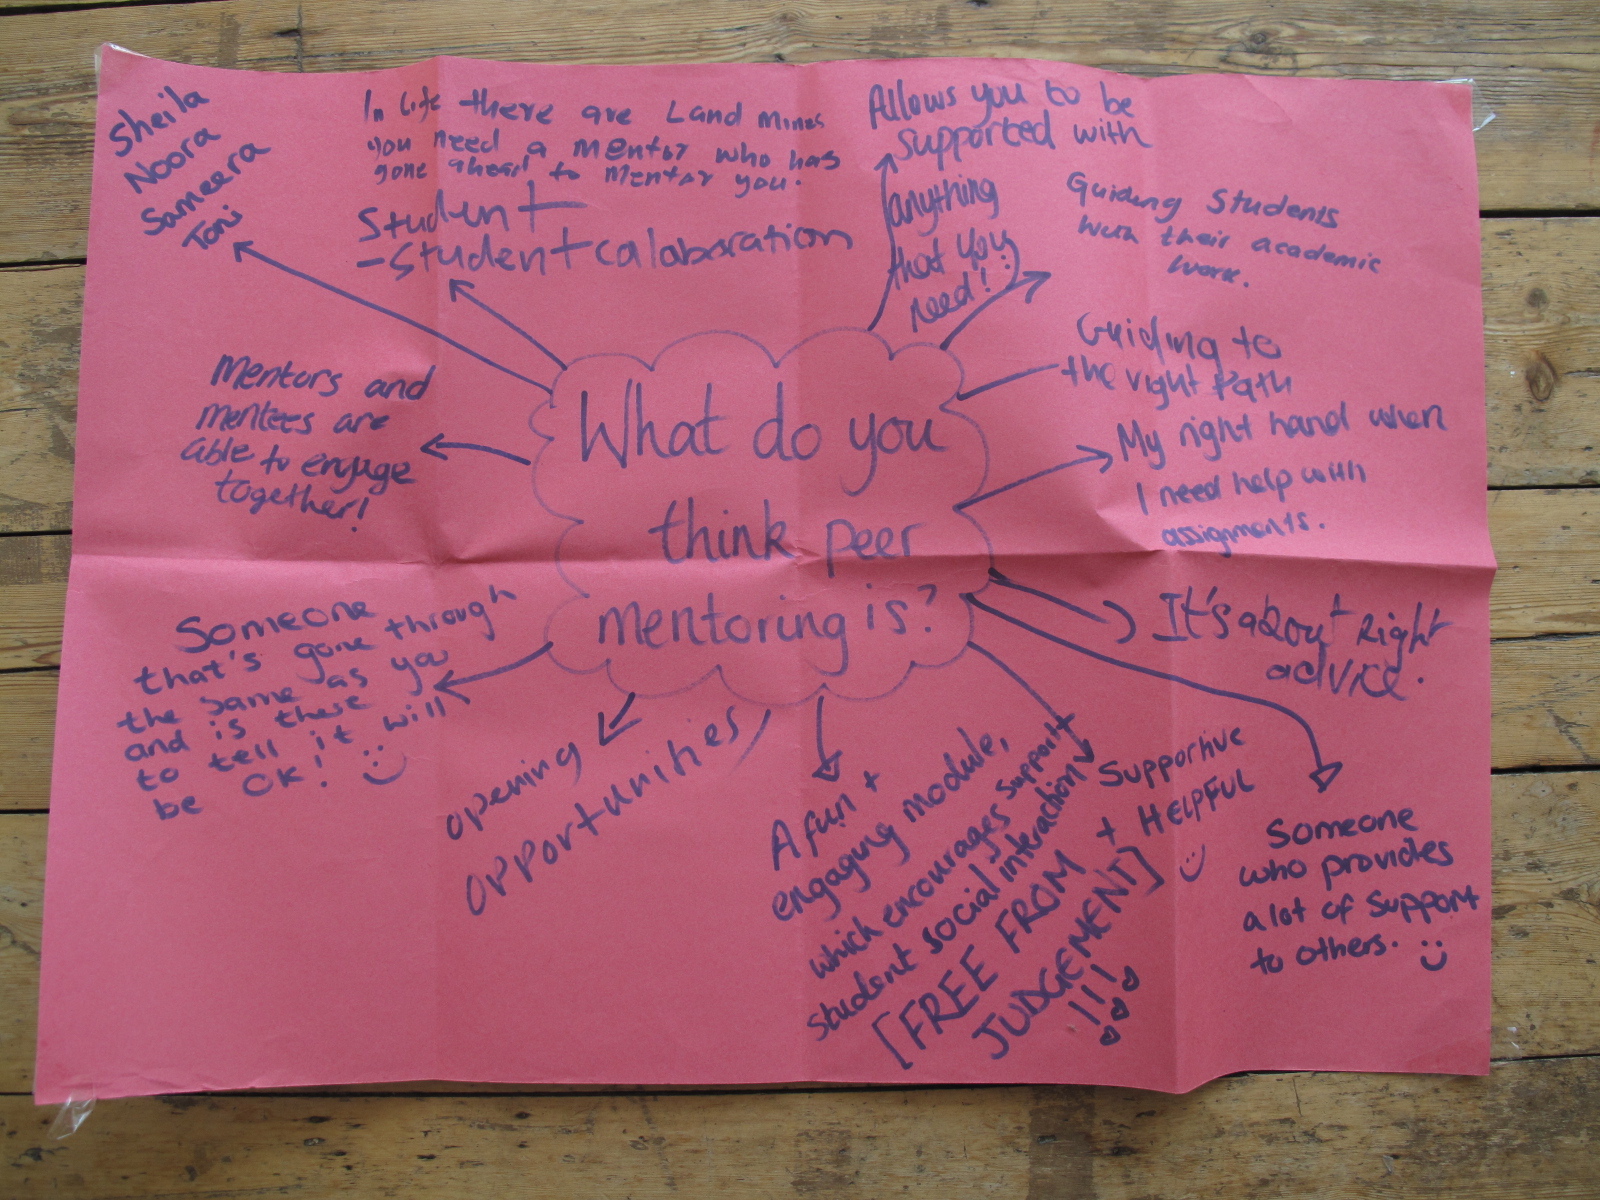 Sheila
Noora
Sameera
Toni
In life there are Land mines
you need a mentor who has
gone ahead to mentor you.
Student
-Student calaboration
Allows you to be
supported with
anything
that you
need! :)
Guiding Students
with their academic
work.
Guiding to
the right Path
My right hand when
I need help with
assignments.
It's about Right
advice.
Someone
who provides
a lot of support
to others.
Supportive
+ HELPFUL
A fun +
engaging module,
which encourages support +
student social interaction
[FREE FROM
JUDGEMENT]
!!!
opening
opportunities
Someone
that's gone through
the same as you
and is there
to tell it will
be OK!
Mentors and
mentees are
able to engage
together!
What do you
think peer
mentoring is?